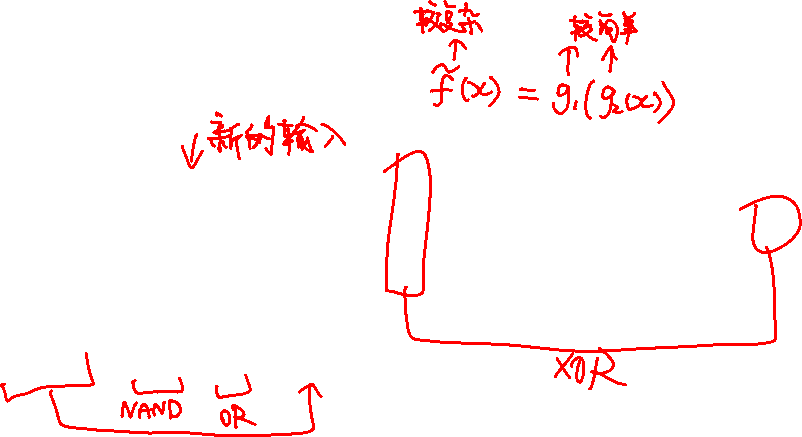 较复杂 较简单
f̃(x) = g₁(g₂(x))
新的输入
XOR
NAND OR